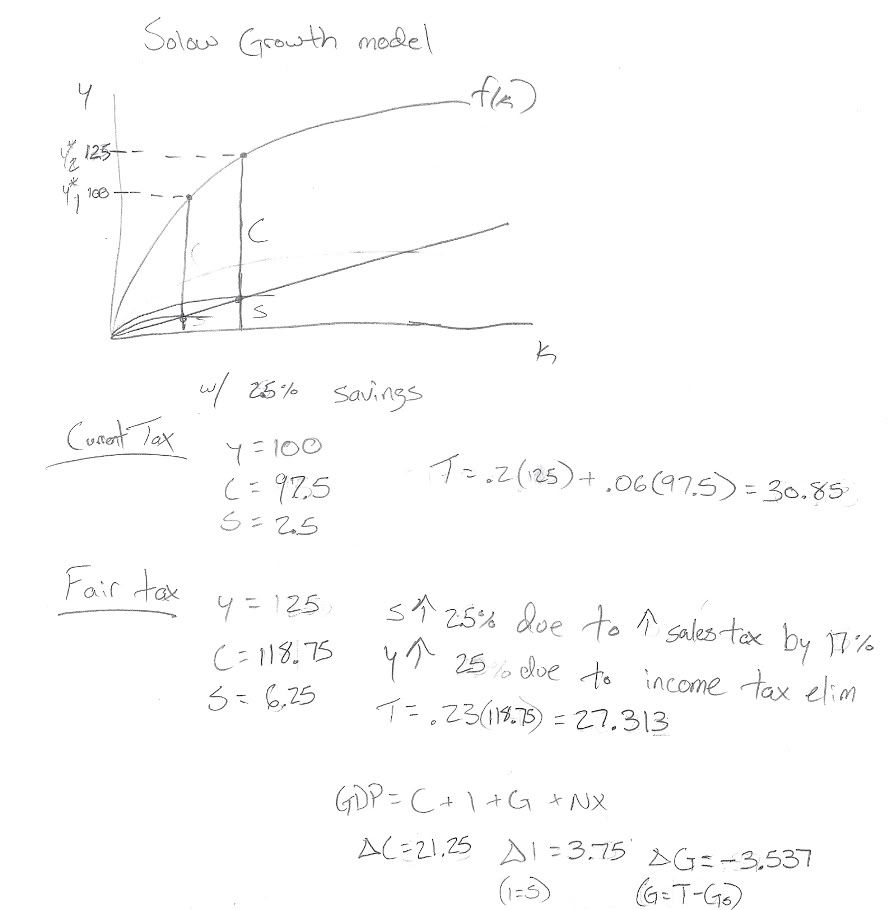 Solow Growth model
y
f(k)
y₂* 125
y₁* 100
C
C
S
S
k
w/ 25% savings
Current Tax
y = 100
C = 97.5
S = 2.5
T = .2(125) + .06(97.5) = 30.85
Fair tax
y = 125
C = 118.75
S = 6.25
S↑ 25% due to ↑ sales tax by 17%
y↑ 25% due to income tax elim
T = .23(118.75) = 27.313
GDP = C + I + G + NX
ΔC = 21.25 ΔI = 3.75 ΔG = -3.537
(I=S) (G=T-G₀)